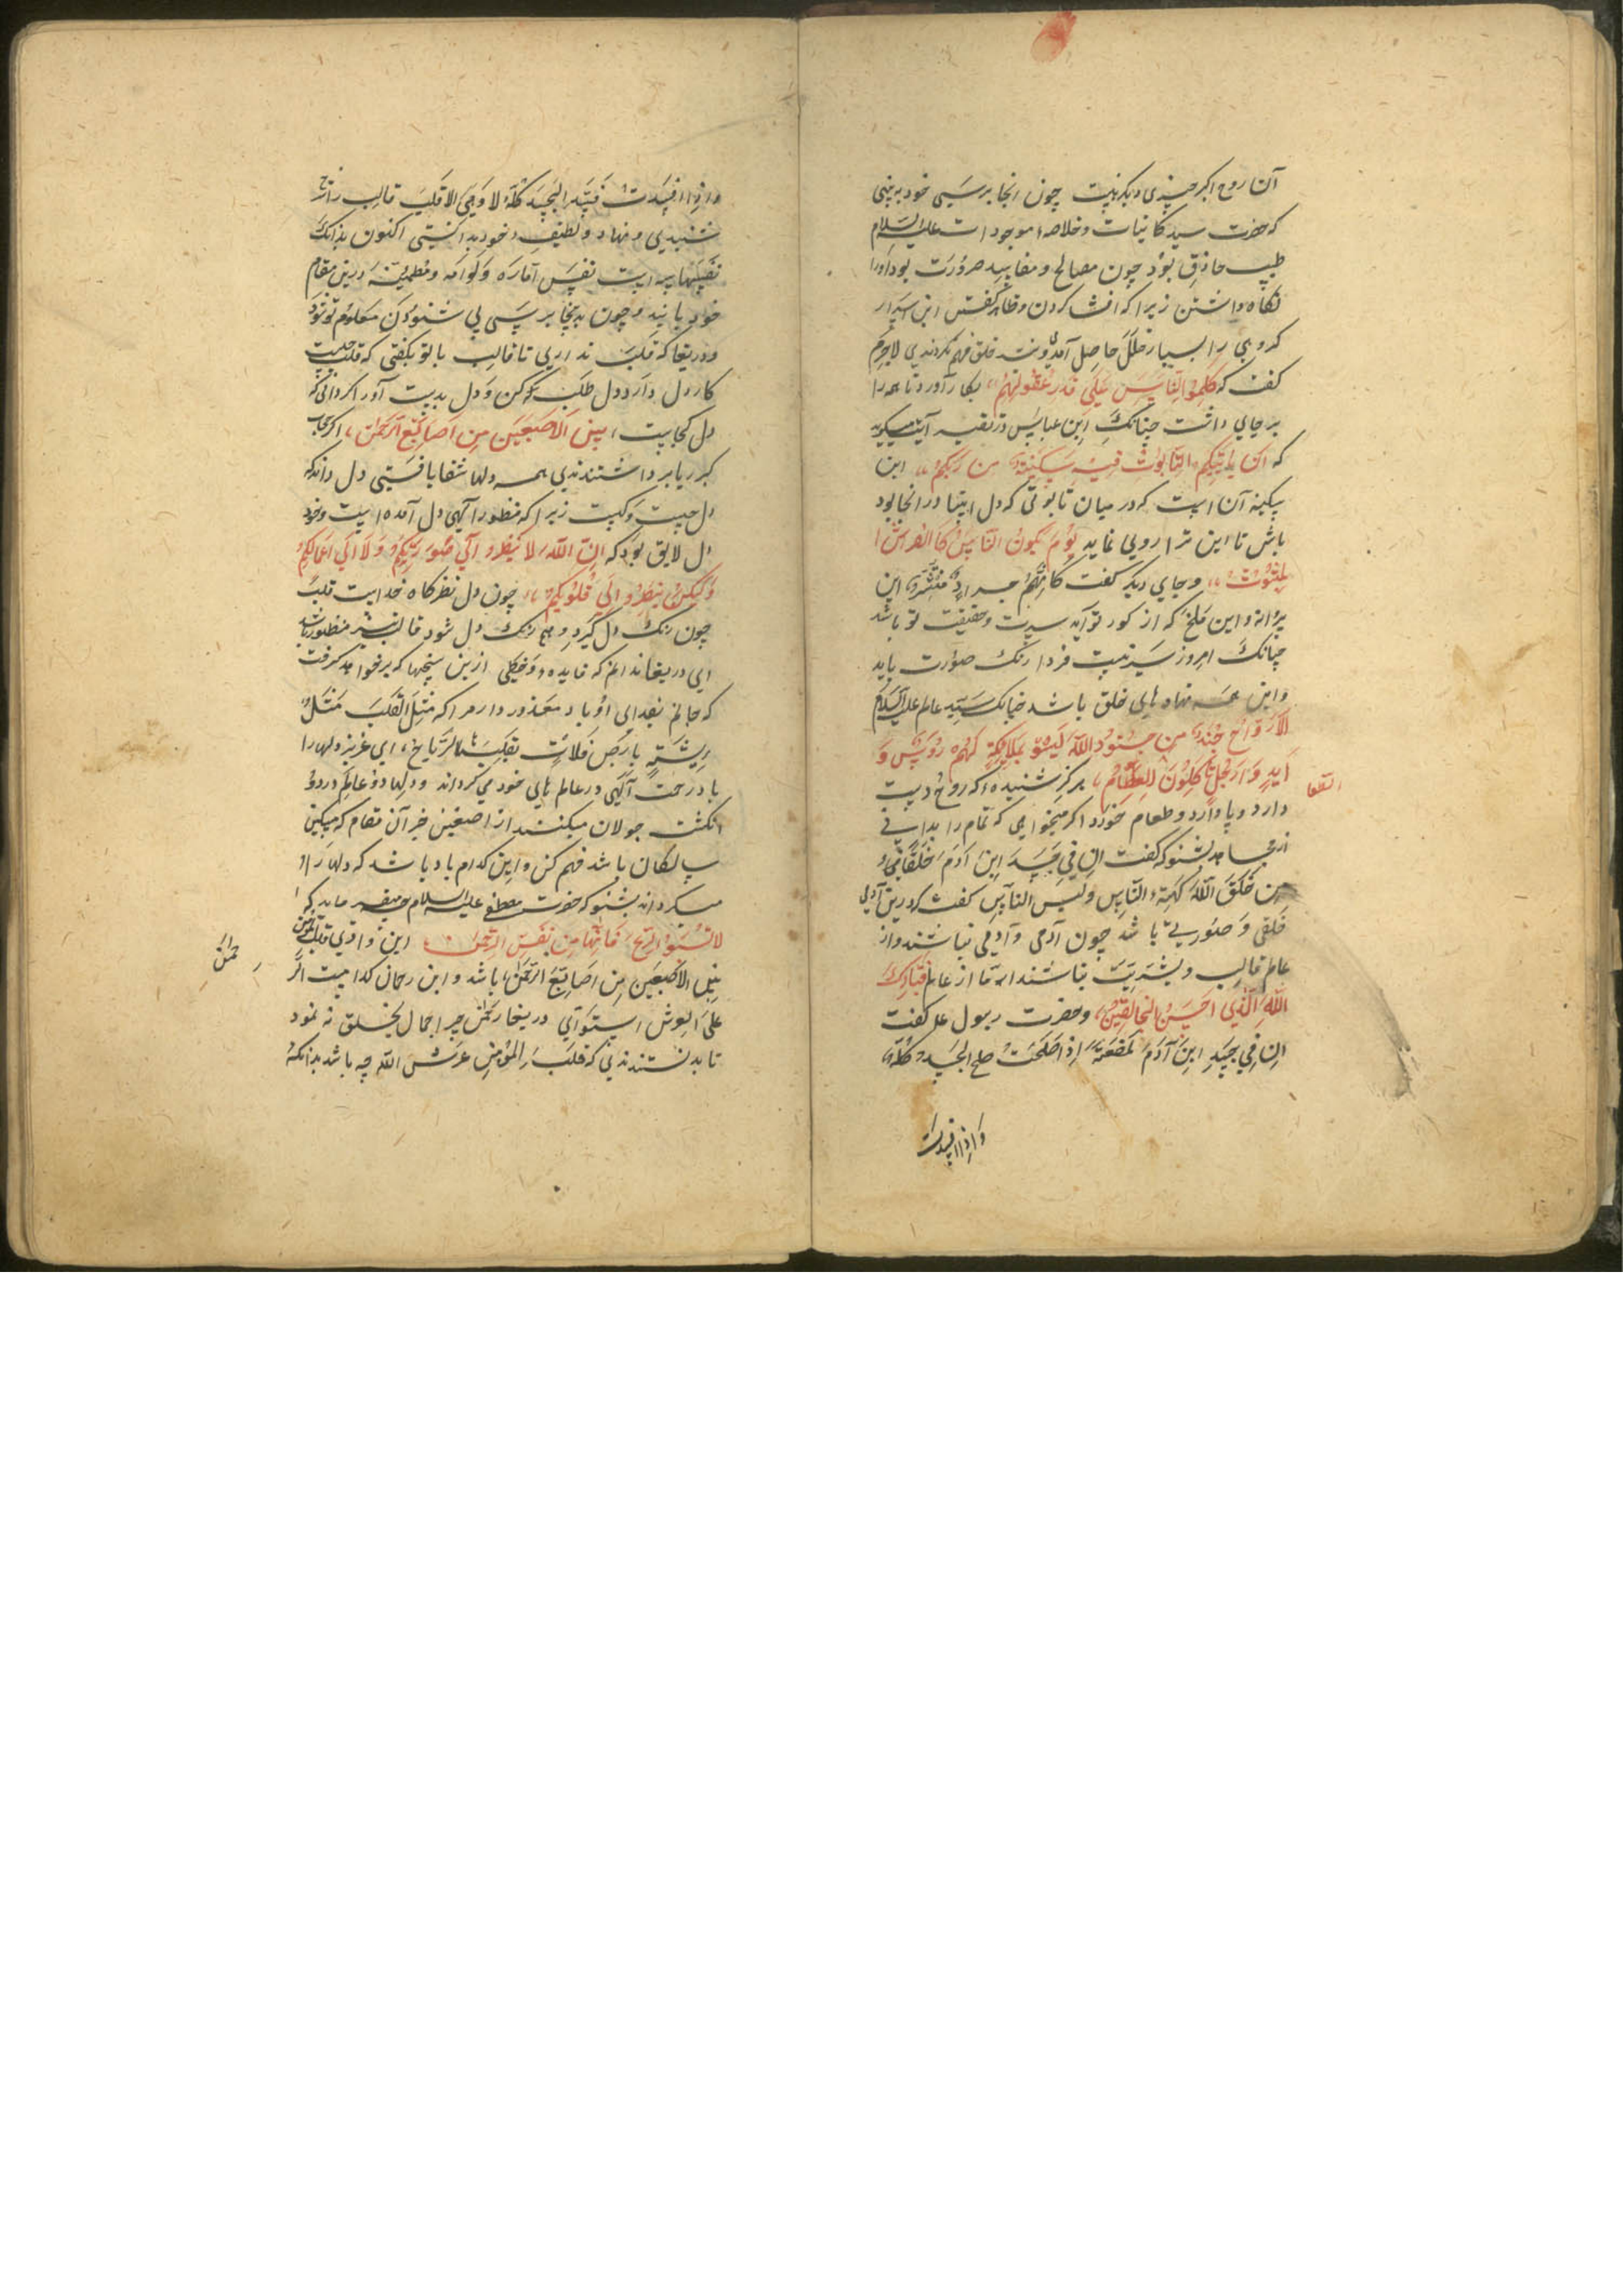 آن روح اکبر چیزی دیکر نیست چون انجا برسی خود به بینی
که حضرت سید کاینات و خلاصه موجودات علیه السلام
طبیب حاذق بود چون مصالح و مفاسد ضرورت بود او را
نکاه داشتن زیرا که افشا کردن و ظاهر کفتن این اسرار
کروهی را بسیار خلل حاصل آمدی و نیز خلق فهم نکردندی لاجرم
کفت که کلموا الناس علی قدر عقولهم بکار آورد تا همه را
بر جای داشت چنانک ابن عباس در تفسیر آیت میکوید
که ان یاتیکم التابوت فیه سکینة من ربکم این
سکینه آن است که در میان تابوتی که دل انبیا در انجا بود
باش تا این ترا روی نماید یوم یکون الناس کالفراش ا
لمبثوث و جای دیکر کفت کانهم جراد منتشر این
پروانه و این ملخ که از کور تو آید سیرت و حقیقت تو باشد
چنانک امروز سیرتیست فردا رنک صورت یابد
و این همه نهاد های خلق باشد چنانک سید عالم علیه السلام
الارواح جند من جنود الله لیسوا بملایکة لهم رؤس و
اید و ارجل یاکلون الطعام هرکز شنیده که روح دست
دارد و پا دارد و طعام خورد اکر میخواهی که تمام را بدانی
از مجاهد بشنو که کفت ان فی جسد ابن آدم خلقا
من خلق الله کهیة الناس ولیس الناس کفت که درین آدمی
خلقی و صورتی باشد چون آدمی و آدمی نباشند و از
عالم قالب و بشریت نباشند اما از عالم فتبارک
الله الذی احسن الخالقین و حضرت رسول علم کفت
ان فی جسد ابن آدم لمضغة اذا صلحت صلح الجسد کله
واذا افسدت
واذا افسدت فسد الجسد کله الا وهی الا قلب قالب را
شنیدی و نهاد و لطیف و خود بدانستی اکنون بدانک
نفسها سه است نفس اماره و لوامه و مطمینه درین مقام
خود یابند و چون بدینجا برسی بی شنودن معلوم تو شود
و دریغا که قلب نداری تا قالب با تو بکفتی که قلب چیست
کار دل دارد دل طلب کن و دل بدست آور اکر دانی که
دل کجاست بین الاصبعین من اصابع الرحمن اکر حجاب
کبریا برداشتندی همه دلها شفا یافتی دل داند که
دل چیست و کیست زیرا که منظور آلهی دل آمده است و خود
دل لایق بود که ان الله لا ینظر الی صورکم ولا الی اعمالکم
ولکن ینظر الی قلوبکم چون دل نظرکاه خداست قلب
چون رنک دل کیرد و هم رنک دل شود قالب نیز منظور باشد
ای دریغا ندانم که فایده و حظی ازین سخنها که برخواهد کرفت
که جانم فدای او باد معذور دار مرا که مثل القلب مثل
ریشة بارض فلات تقلبها الریاح ای عزیز دلها را
باد رحمت آلهی در عالم های خود می کرداند و دلها در عالم در دو
انکشت جولان میکنند از اصبعین خبر آن مقام که مسکین
سالکان باشد فهم کن و این کدام باد باشد که دلها را
میکرداند بشنو که حضرت مصطفی علیه السلام میفرماید که
لا تسبوا الریح فانها من نفس الرحمن این وادی قلب المؤمن
بین الاصبعین من اصابع الرحمن باشد و این رحمان کدامست الر
حمن
علی العرش استوی دریغا رحمن چرا جمال بخلق نه نمود
تا بدانستندی که قلب المؤمن عرش الله چه باشد بدانکه